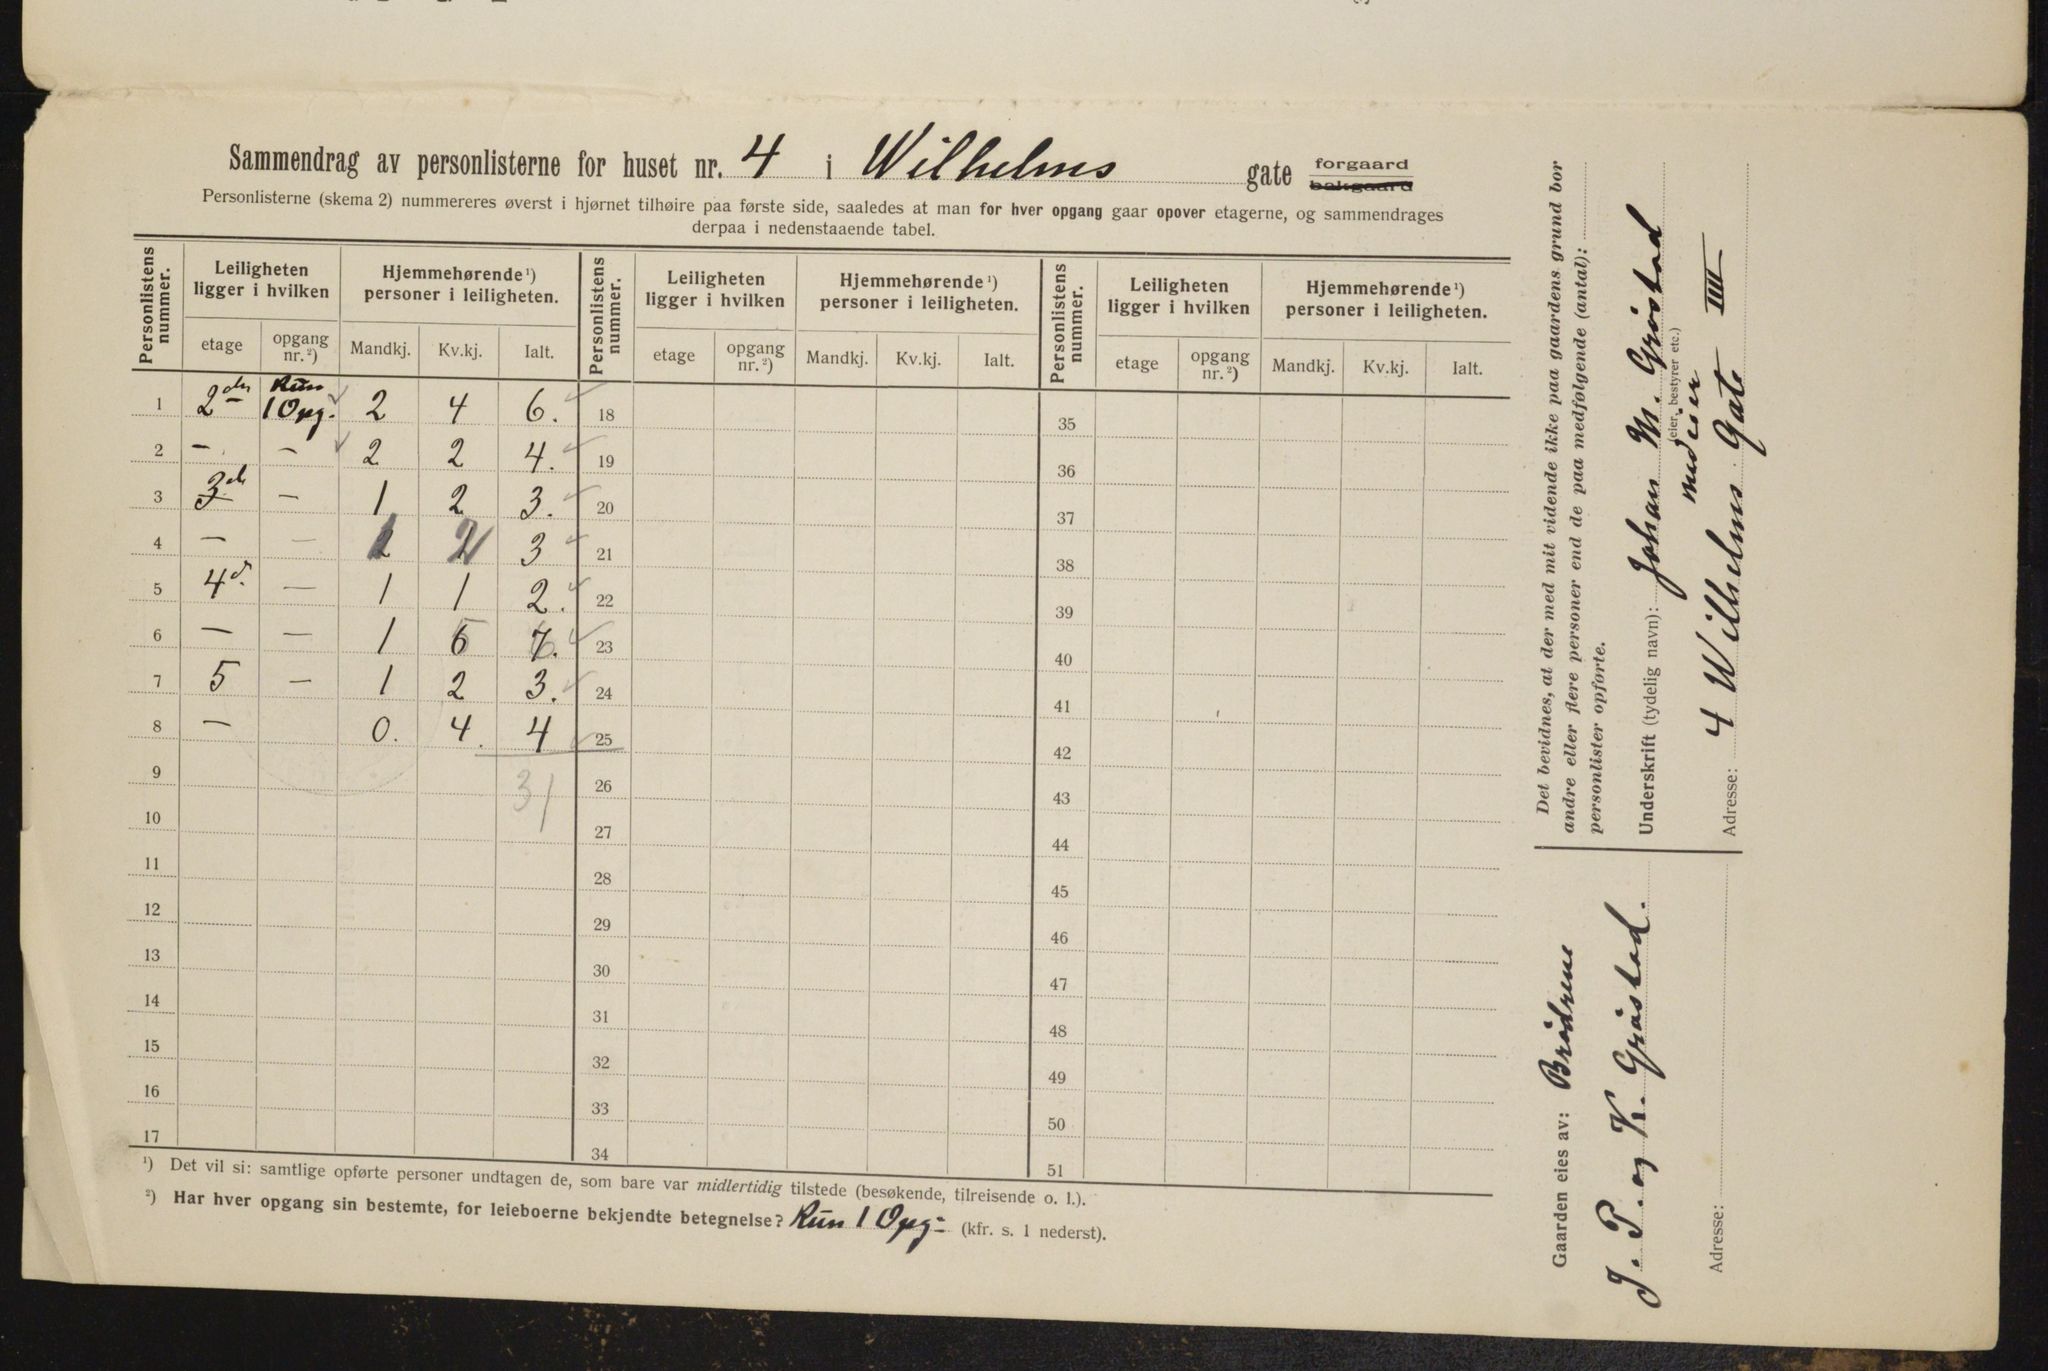 Sammendrag av personlisterne for huset nr. 4 i Wilhelms gate forgaard bakgaard
Personlisterne (skema 2) nummereres øverst i hjørnet tilhøire paa første side, saaledes at man for hver opgang gaar opover etagerne, og sammendrages
derpaa i nedenstaaende tabel.
Personlistens nummer. Leiligheten ligger i hvilken Hjemmehørende ¹) personer i leiligheten. Personlistens nummer. Leiligheten ligger i hvilken Hjemmehørende ¹) personer i leiligheten. Personlistens nummer. Leiligheten ligger i hvilken Hjemmehørende ¹) personer i leiligheten.
etage opgang nr. ²) Mandkj. Kv.kj. Ialt. etage opgang nr. ²) Mandkj. Kv.kj. Ialt. etage opgang nr. ²) Mandkj. Kv.kj. Ialt.
1 2den Kun 1 Opg. 2 4 6. 18 35
2 – – 2 2 4. 19 36
3 3de – 1 2 3. 20 37
4 – – 1 2 3 21 38
5 4d. – 1 1 2. 22 39
6 – – 1 6 7. 23 40
7 5 – 1 2 3. 24 41
8 – 0. 4. 4 25 42
9 31 26 43
10 27 44
11 28 45
12 29 46
13 30 47
14 31 48
15 32 49
16 33 50
17 34 51
¹) Det vil si: samtlige opførte personer undtagen de, som bare var midlertidig tilstede (besøkende, tilreisende o. l.).
²) Har hver opgang sin bestemte, for leieboerne bekjendte betegnelse? Kun 1 Opg: (kfr. s. 1 nederst).
Det bevidnes, at der med mit vidende ikke paa gaardens grund bor
andre eller flere personer end de paa medfølgende (antal):
personlister opførte.
Underskrift (tydelig navn): Johan M. Grøstad
(eier, bestyrer etc.)
medeier
Adresse: 4 Wilhelms Gate IIII
Gaarden eies av: Brødrene
J. P. og K. Grøstad.
Adresse: